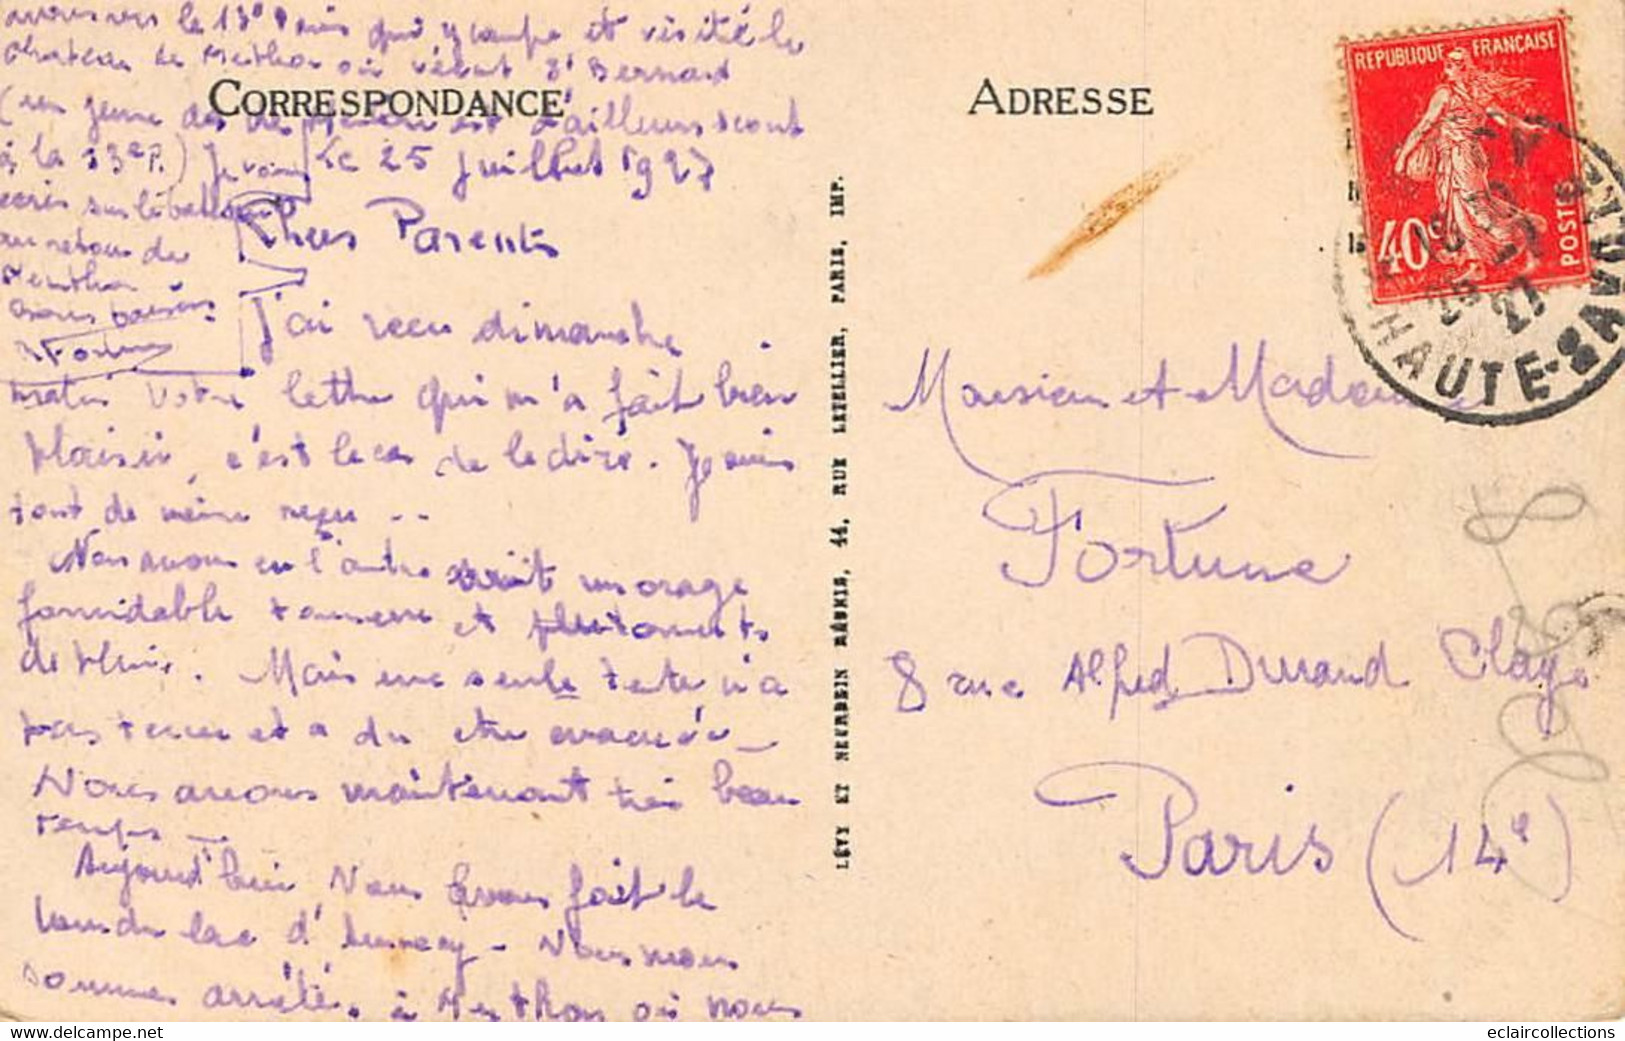 CORRESPONDANCE
le 25 juillet 1927
Chers Parents
J'ai reçu dimanche
matin votre lettre qui m'a fait bien
plaisir, c'est le cas de le dire. Je suis
tout de même
Nous avons eu l'autre nuit un orage
formidable tonnerre et
de pluie. Mais une seule tente n'a
pas tenu et a du etre evacuée
Nous avons maintenant très beau
temps
Aujourd'hui, Nous avons fait le
tour du lac d'Annecy - Nous nous
sommes arrêtés à Menthon où nous
avons vu le 13e Paris qui y campe et visité le
chateau de Menthon où vécut St Bernard
(un jeune des de Menthon est d'ailleurs scout
à la 13e P.) Je vous
écris sur le bateau
au retour de
Menthon
Bons baisers
LÉVY ET NEURDEIN RÉUNIS, 44, RUE LETELLIER, PARIS, IMP.
ADRESSE
RÉPUBLIQUE FRANÇAISE
40c
POSTES
27
HAUTE-SAVOIE
Monsieur et Madame
Fortune
8 rue Alfred Durand Claye
Paris (14e)
www.delcampe.net
eclaircollections